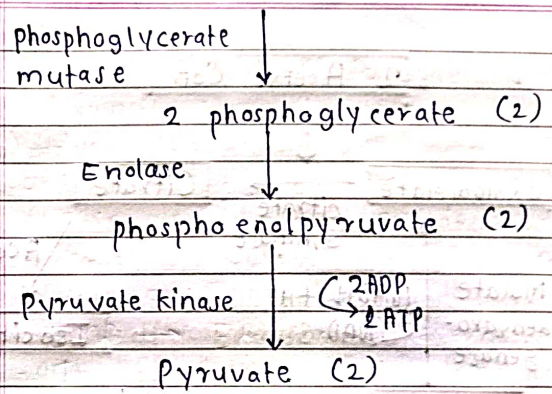 phosphoglycerate
mutase
2 phosphoglycerate (2)
Enolase
phospho enolpyruvate (2)
Pyruvate kinase
2ADP
2ATP
Pyruvate (2)